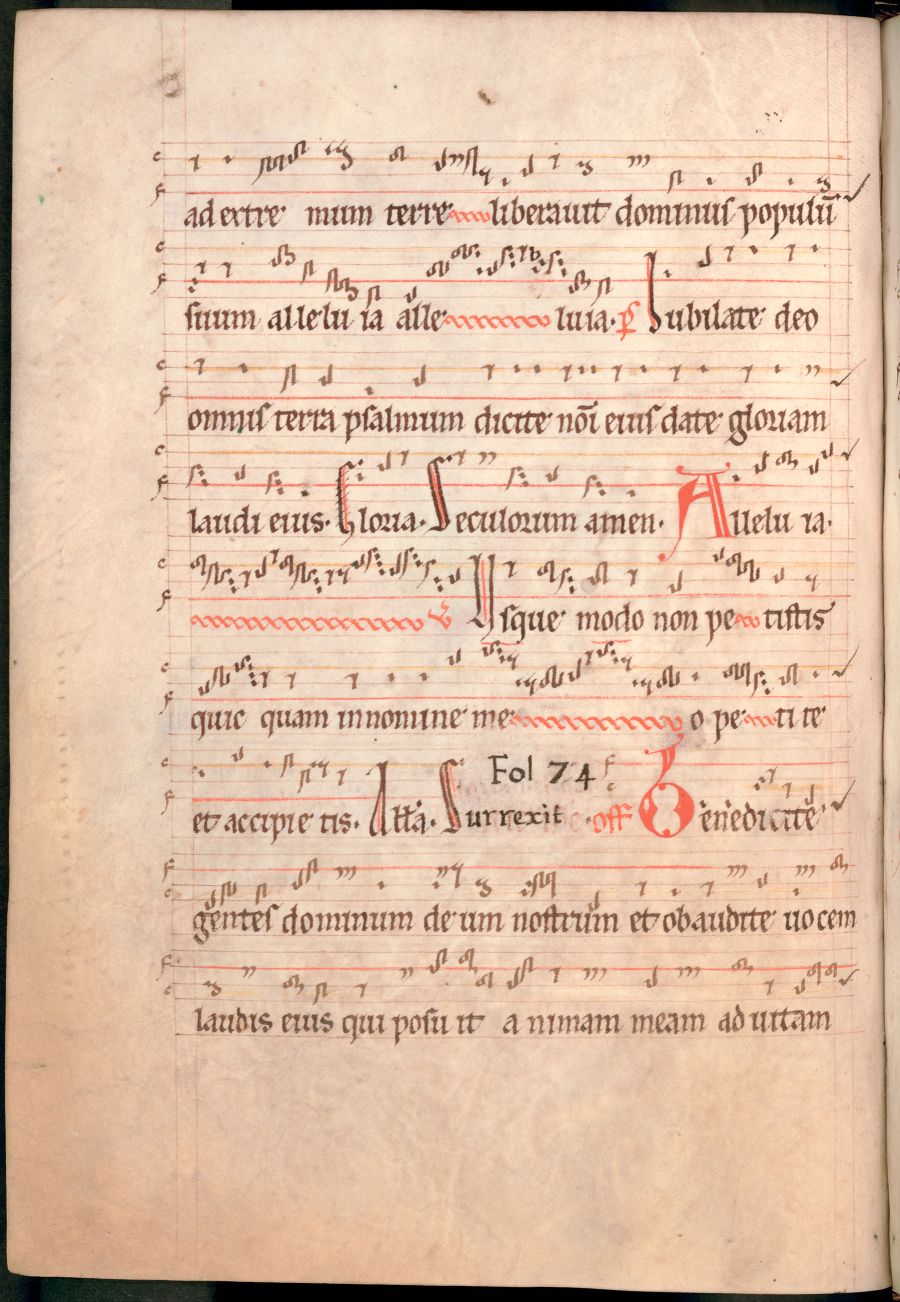 ad extre mum terre liberauit dominus populū
suum allelu ia alle luia. p̄s Jubilate deo
omnis terra psalmum dicite nōi eius date gloriam
laudi eius. Gloria. Seculorum amen. Allelu ia.
v̄ Usque modo non pe tistis
quic quam in nomine me o pe ti te
et accipie tis. Alla. Surrexit Fol 74 off Benedicite
gentes dominum de um nostrum et obaudite uocem
laudis eius qui posu it a nimam meam ad uitam